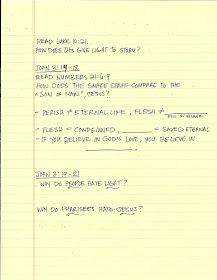 READ LUKE 10:21
HOW DOES THIS GIVE LIGHT TO STORY?
JOHN 3:14-18
READ NUMBERS 21:6-9
HOW DOES THE SNAKE STAFF COMPARE TO THE
"SON OF MAN", JESUS?
- PERISH ≠ ETERNAL LIFE, FLESH ≠ ______
FILL IN BLANK
- FLESH = CONDEMNED, ______ = SAVED ETERNAL
- IF YOU BELIEVE IN GOD'S LOVE, YOU BELIEVE IN
______.
JOHN 3:19-21
WHY DO PEOPLE HATE LIGHT?
WHY DO PHARISEES HATE JESUS?